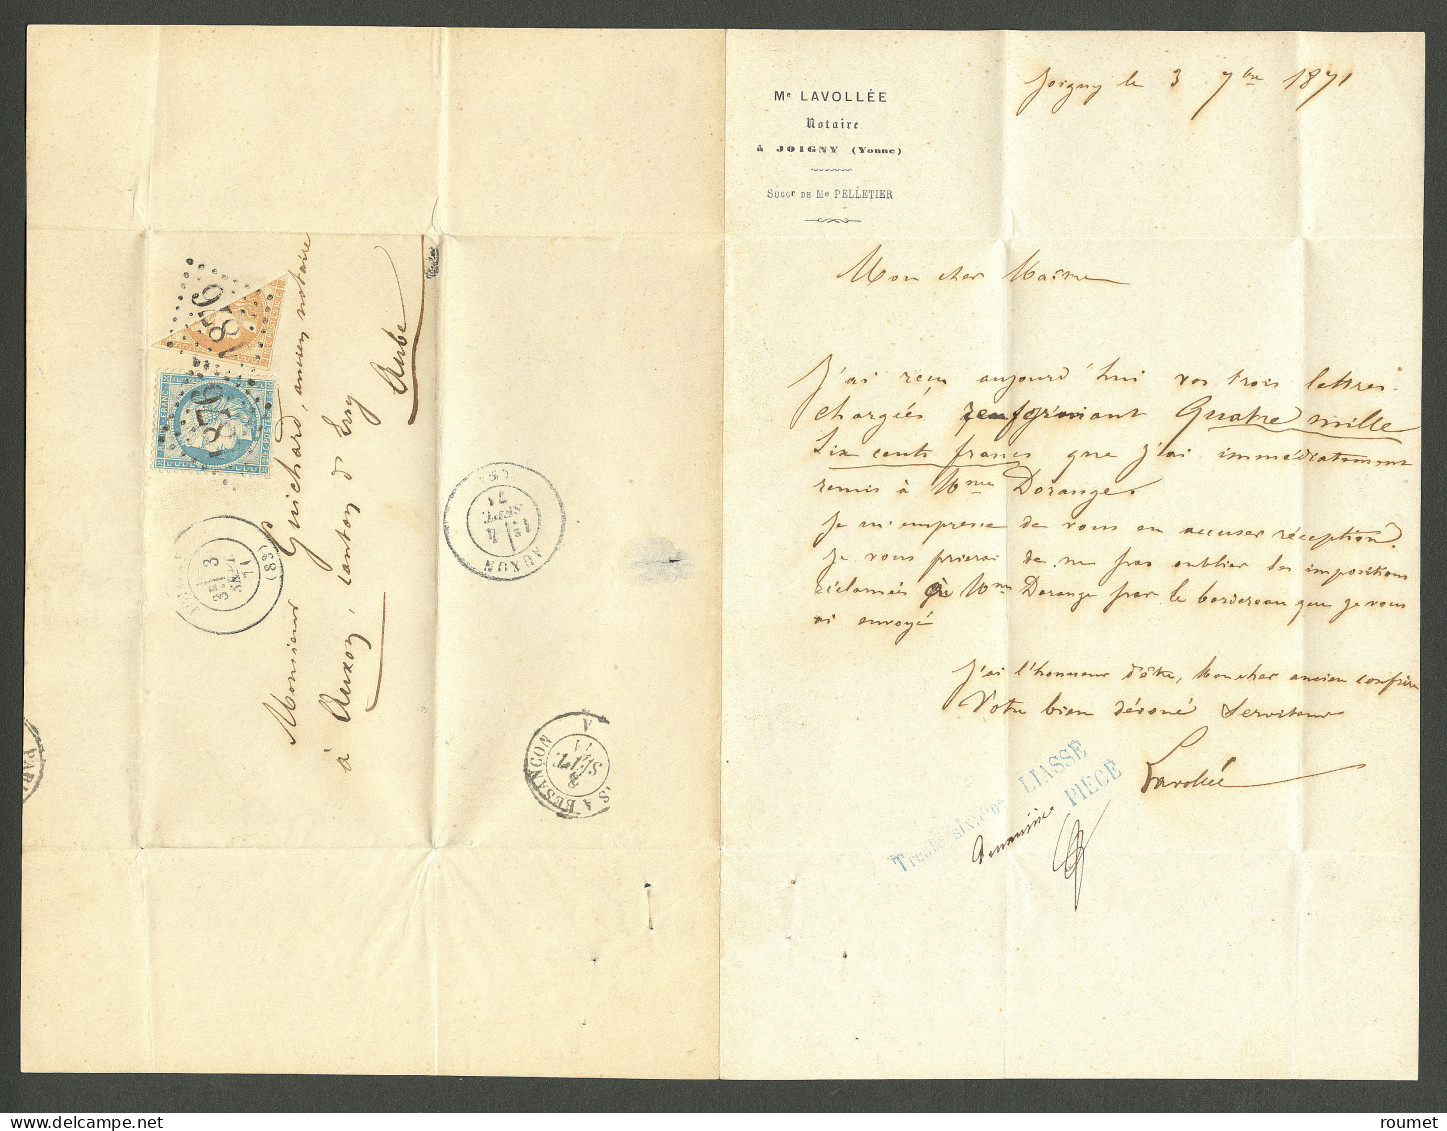 Me LAVOLLÉE
Notaire
à JOIGNY (Yonne)
Succr DE Me PELLETIER
Joigny le 3 7bre 1871
Mon cher Maître
J'ai reçu aujourd'hui vos trois lettres
chargées renfermant Quatre mille
Six cents francs que j'ai immédiatement
remis à Mme Dorange.
Je m'empresse de vous en accuser réception.
Je vous prierai de ne pas oublier les impositions
réclamées à Mme Dorange par le bordereau que je vous
ai envoyé
J'ai l'honneur d'être, Mon cher ancien confrère
Votre bien dévoué Serviteur
Lavollée
Trente sixième LIASSE
PIECE
Monsieur Guichard, ancien notaire
à Auxon, canton d'Ervy
Aube
1876
1876
FRANC
POSTES
3E 3
SEPT.
71
(83)
AUXON
1E 4
SEPT.
71
S A BESANÇON
8
SEPT.
71
A
PARI
roumet